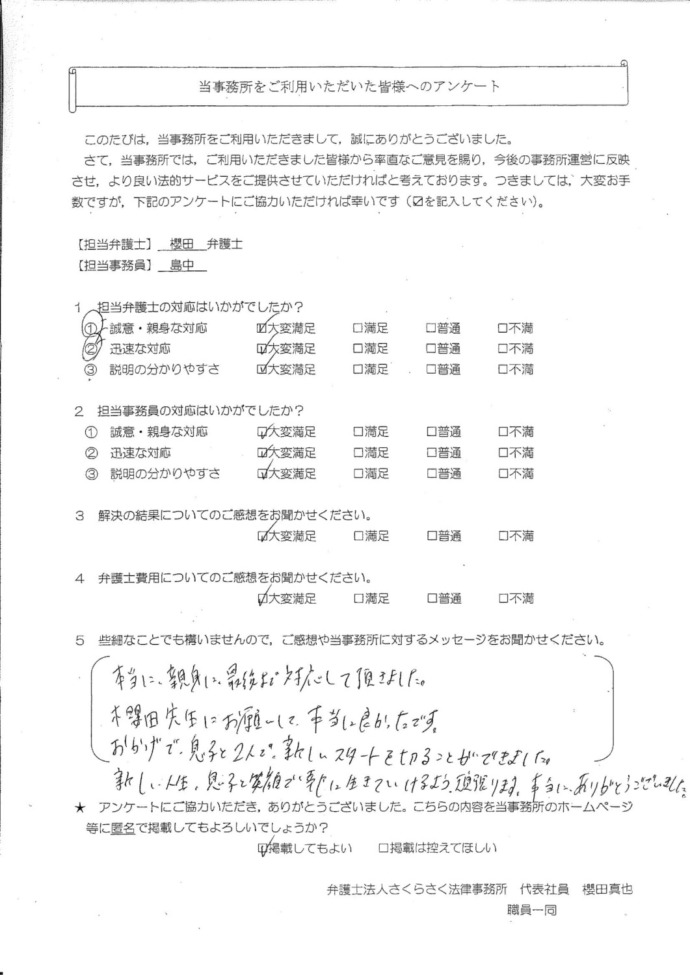 当事務所をご利用いただいた皆様へのアンケート
このたびは，当事務所をご利用いただきまして，誠にありがとうございました。
さて，当事務所では，ご利用いただきました皆様から率直なご意見を賜り，今後の事務所運営に反映
させ，より良い法的サービスをご提供させていただければと考えております。つきましては，大変お手
数ですが，下記のアンケートにご協力いただければ幸いです（☑を記入してください）。
【担当弁護士】 櫻田 弁護士
【担当事務員】 島中
1 担当弁護士の対応はいかがでしたか？
① 誠意・親身な対応 ☑大変満足 □満足 □普通 □不満
② 迅速な対応 ☑大変満足 □満足 □普通 □不満
③ 説明の分かりやすさ ☑大変満足 □満足 □普通 □不満
2 担当事務員の対応はいかがでしたか？
① 誠意・親身な対応 ☑大変満足 □満足 □普通 □不満
② 迅速な対応 ☑大変満足 □満足 □普通 □不満
③ 説明の分かりやすさ ☑大変満足 □満足 □普通 □不満
3 解決の結果についてのご感想をお聞かせください。
☑大変満足 □満足 □普通 □不満
4 弁護士費用についてのご感想をお聞かせください。
☑大変満足 □満足 □普通 □不満
5 些細なことでも構いませんので，ご感想や当事務所に対するメッセージをお聞かせください。
本当に、親身に、最後まで対応して頂きました。
櫻田先生にお願いして、本当に良かったです。
おかげで、息子と2人で、新しいスタートを切ることができました。
新しい人生、息子と笑顔で幸せに生きていけるよう、頑張ります。本当に、ありがとうございました。
★ アンケートにご協力いただき，ありがとうございました。こちらの内容を当事務所のホームページ
等に匿名で掲載してもよろしいでしょうか？
☑掲載してもよい □掲載は控えてほしい
弁護士法人さくらさく法律事務所 代表社員 櫻田真也
職員一同